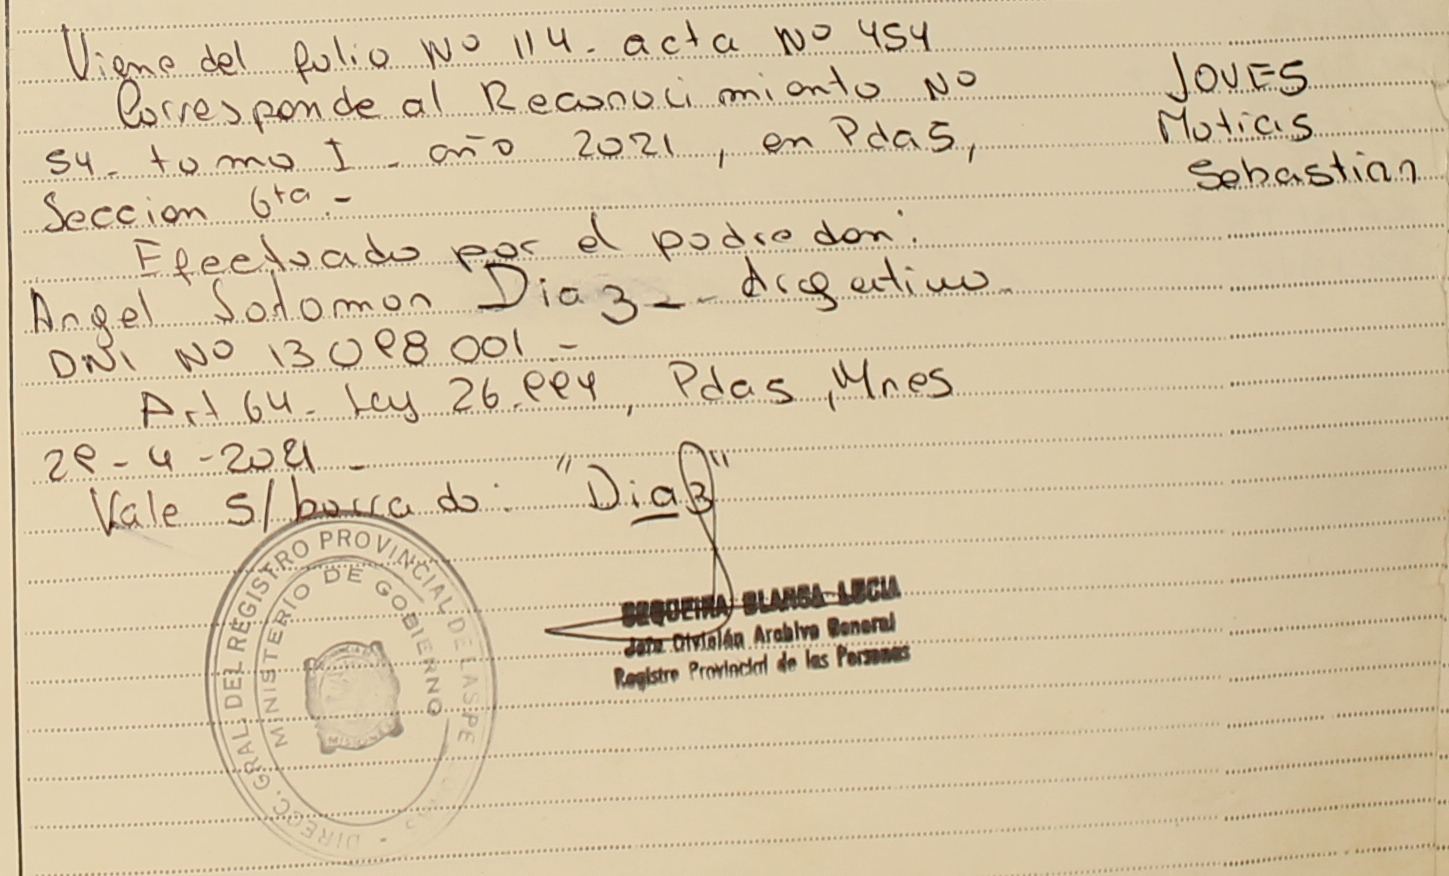 Viene del folio Nº 114 - acta Nº 454
Corresponde al Reconocimiento Nº
54 - tomo I - año 2021, en Pdas,
Seccion 6ta.-
Efectuado por el padre don:
Angel Salomon Diaz - Argentino -
DNI Nº 13 098 001 -
Art 64 - Ley 26.994, Pdas, Mnes
29 - 4 - 2021 -
Vale s/ borrado: "Diaz"
JOVES
Matias
Sebastian
SEQUEIRA BLANCA LUCIA
Jefe División Archivo General
Registro Provincial de las Personas
DIRECC. GRAL. DEL REGISTRO PROVINCIAL DE LAS PE
MINISTERIO DE GOBIERNO